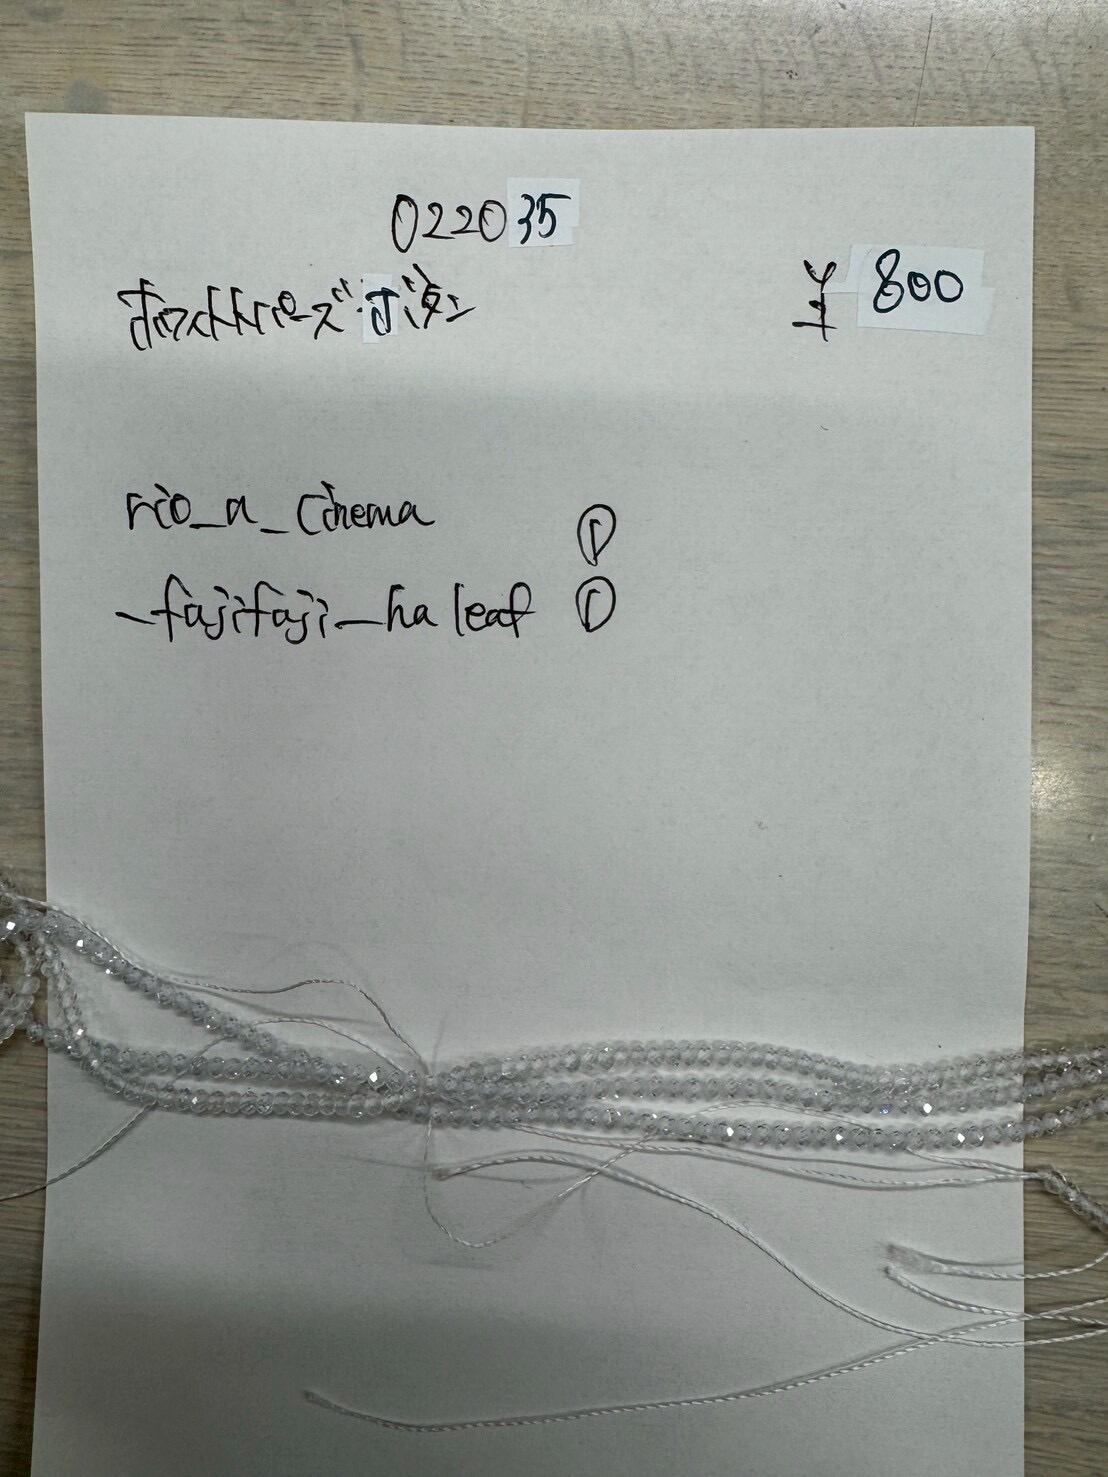 022035
ホワイトトパーズ・ボタン
¥800
rio_a_cinema ①
_fujifuji_ha leaf ①